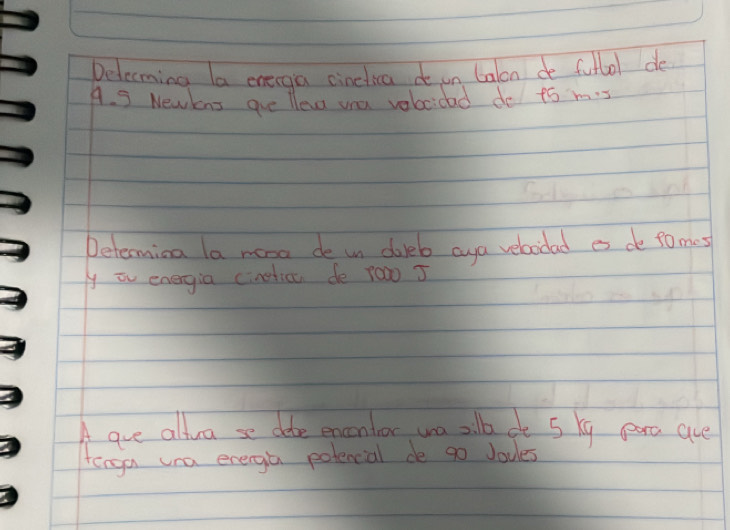 Determina la energia cinetica de un balon de futbol de
4.5 Newtons que lleva una velocidad de 15 m:s
Determina la masa de un cuya velocidad es de 10 m:s
y su energia cinetica de 1000 J
A que altura se debe encontrar una silla de 5 kg para que
tenga una energia potencial de 90 Joules